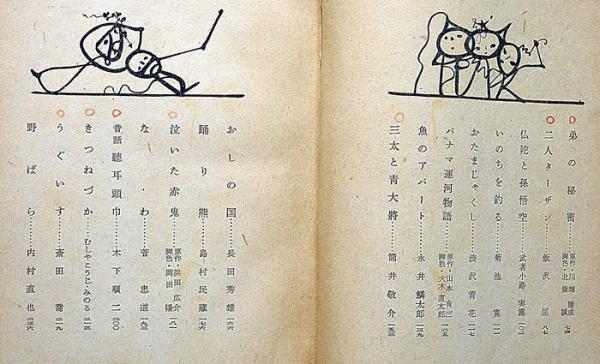 弟の秘密 原作・川端康成 脚色・北條誠 七四
二人ターザン 飯沢匡 八七
仏陀と孫悟空 武者小路実篤 一〇三
いのちを釣る 菊池寛 一一二
おたまじゃくし 湊沢青花 一二七
パナマ運河物語 原作・山本有三 脚色・大木直太郎 一四一
魚のアパート 永井鱗太郎 一四五
三太と青大将 筒井敬介 一五三
おしの国 長田秀雄 一六六
踊り熊 島村民蔵 一七六
泣いた赤鬼 原作・浜田広介 脚色・岡田陽 一八一
なわ 菅忠道 一九二
昔話 聴耳頭巾 木下順二 二〇〇
きつねづか むしゃこうじ・みのる 二一三
うぐいす 斎田喬 二一九
野ばら 内村直也 二三六